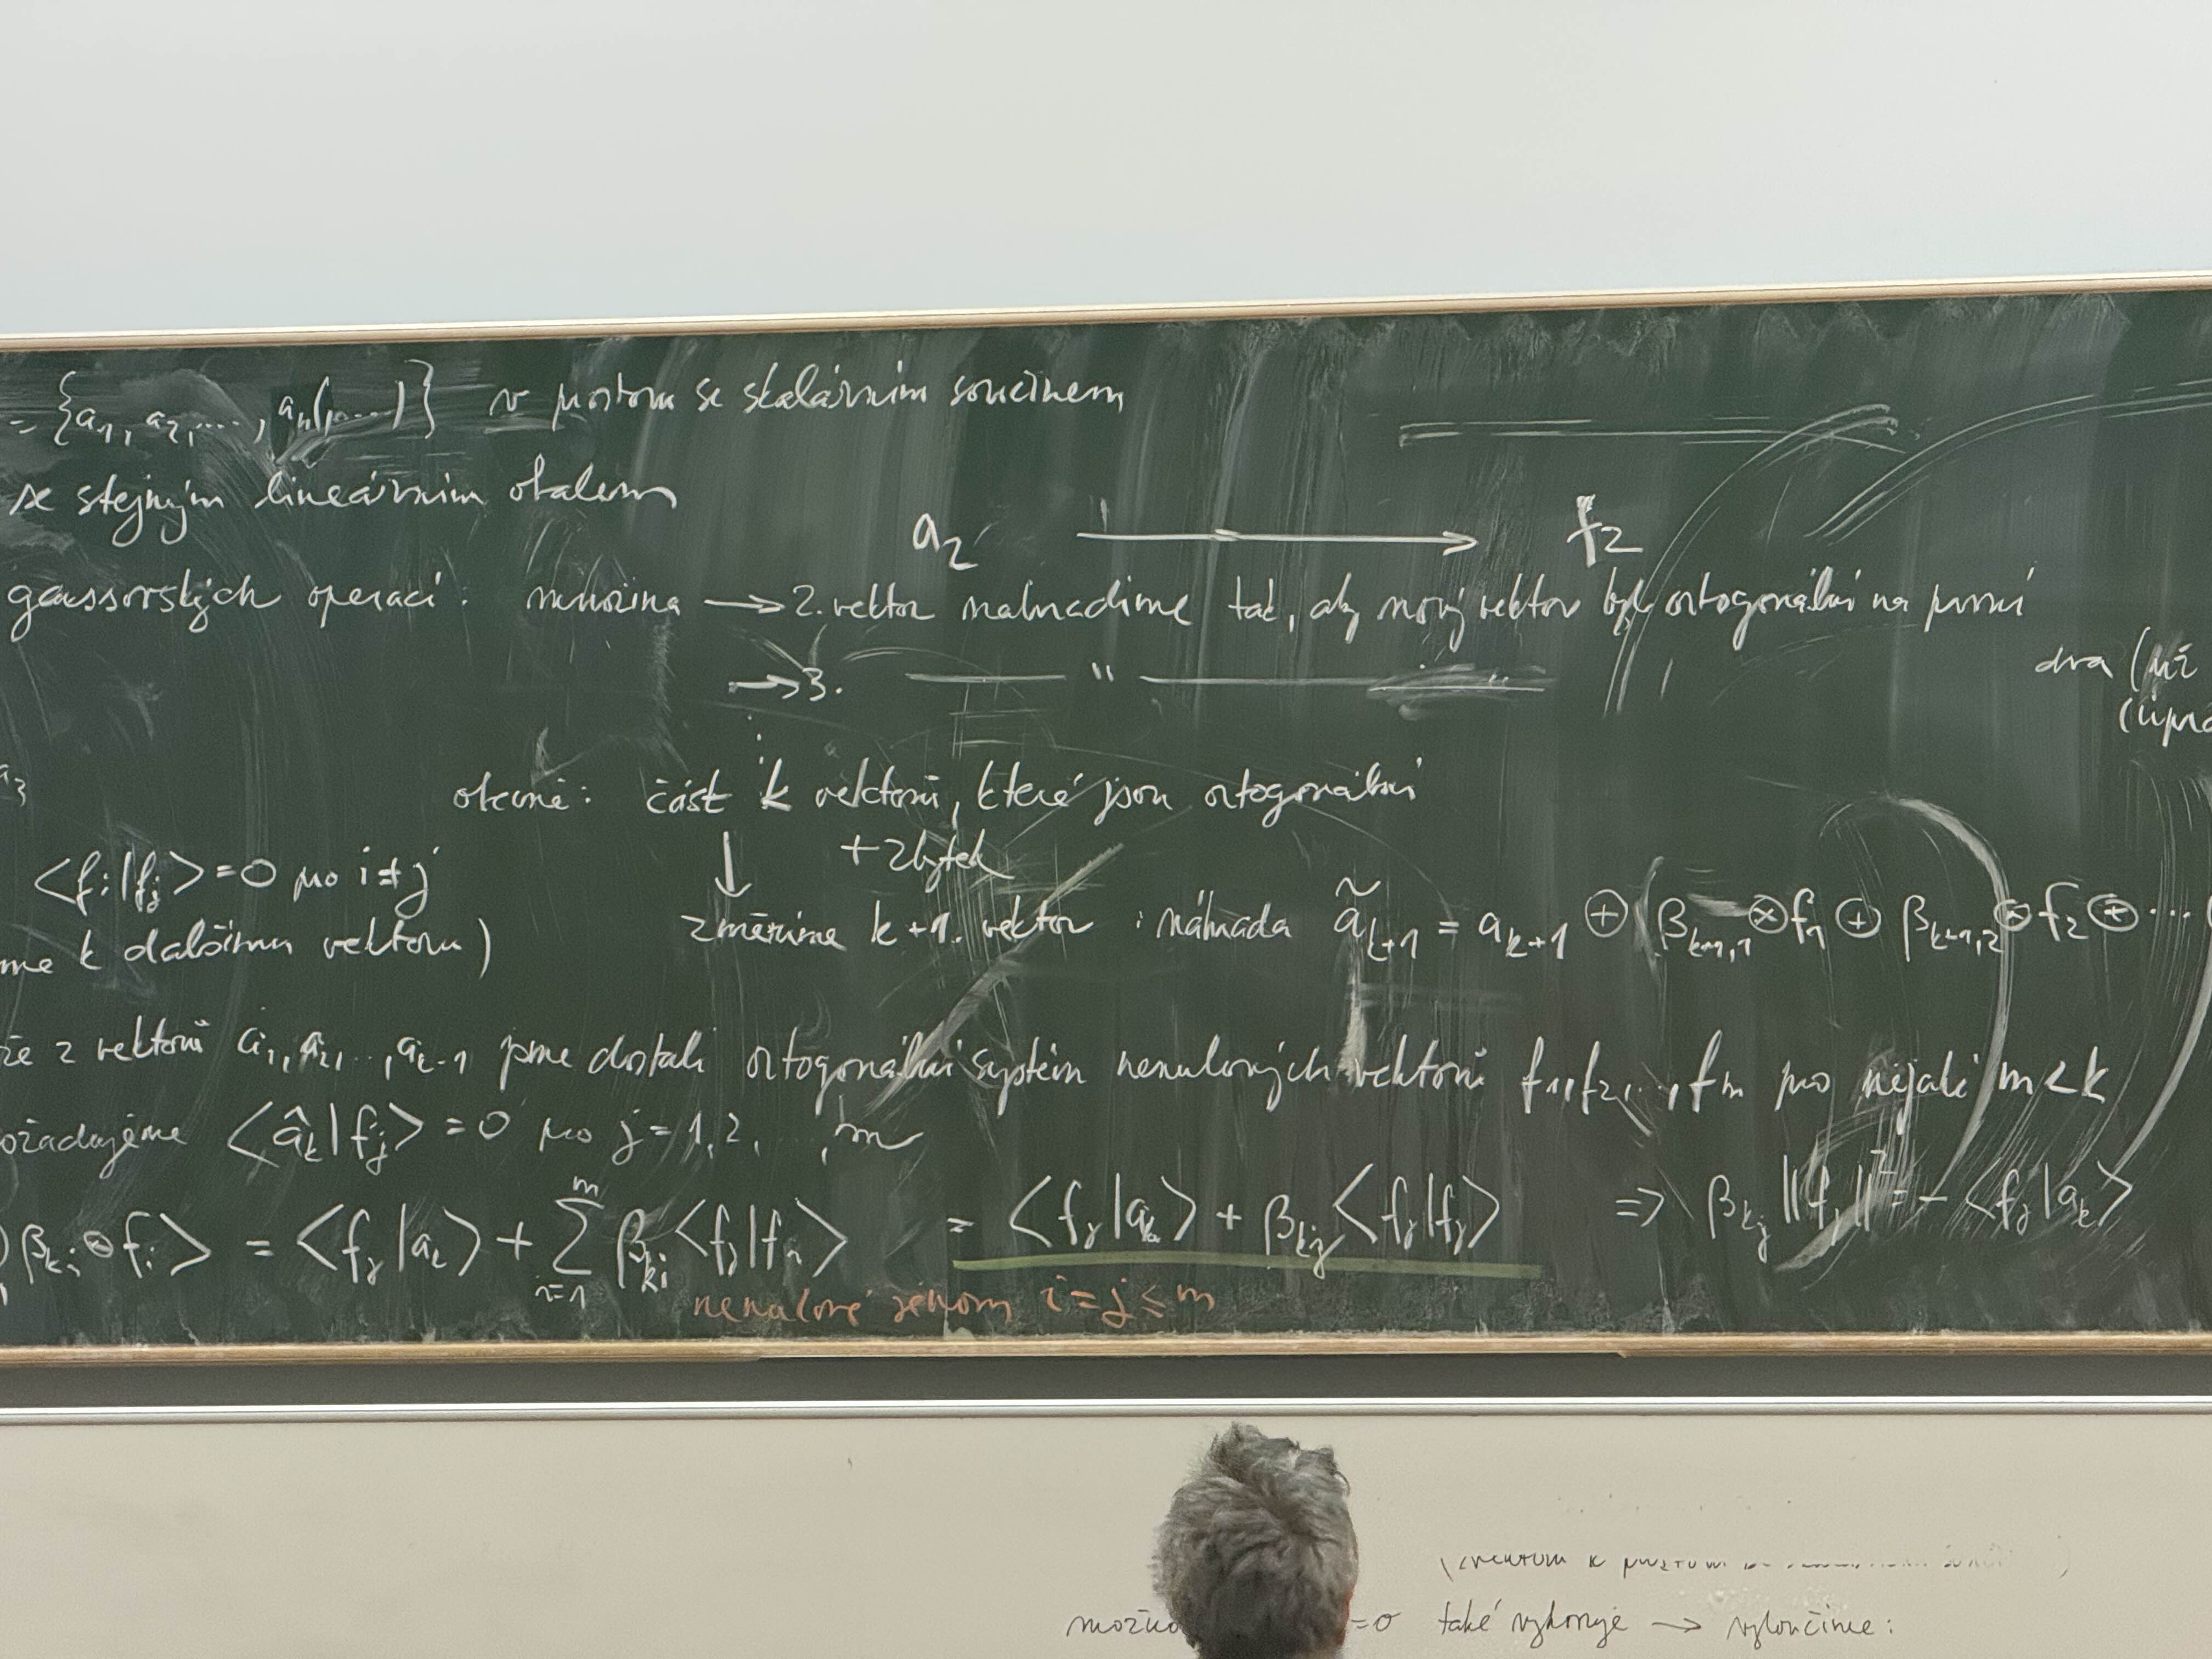 = {a₁, a₂, ..., aₙ(,...)} v prostoru se skalárním součinem
se stejným lineárním obalem
a₂ → f₂
gaussovských operací: množina → 2. vektor nahradíme tak, aby nový vektor byl ortogonální na první
→ 3. — " — dva (již
(upra
a₃ obecně: část k vektorů, které jsou ortogonální
+ zbytek
<fᵢ|fⱼ> = 0 pro i ≠ j ↓
me k dalšímu vektoru) změníme k+1. vektor : náhrada ã_{k+1} = a_{k+1} ⊕ (β_{k+1,1} ⊗ f₁ ⊕ β_{k+1,2} ⊗ f₂ ⊕ ...
že z vektorů a₁, a₂, ..., a_{k-1} jsme dostali ortogonální systém nenulových vektorů f₁, f₂, ..., fₘ pro nějaké m < k
ožadujeme <â_k|fⱼ> = 0 pro j = 1, 2, ..., m
β_{ki} ⊗ fᵢ> = <fⱼ|a_k> + ∑_{i=1}^{m} β_{ki} <fⱼ|fᵢ> = <fⱼ|a_k> + β_{kj} <fⱼ|fⱼ> => β_{kj} ||fⱼ||² = - <fⱼ|a_k>
nenulové jenom i = j ≤ m
možno =0 také vyhovuje → vyloučíme: